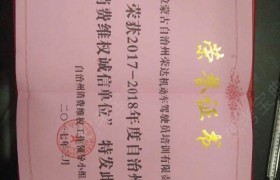 荣誉证书
立蒙古自治州荣达机动车驾驶员培训有限责
荣获2017-2018年度自治州
消费维权诚信单位”，特发此
自治州消费维权工作领导小组
二〇一七年